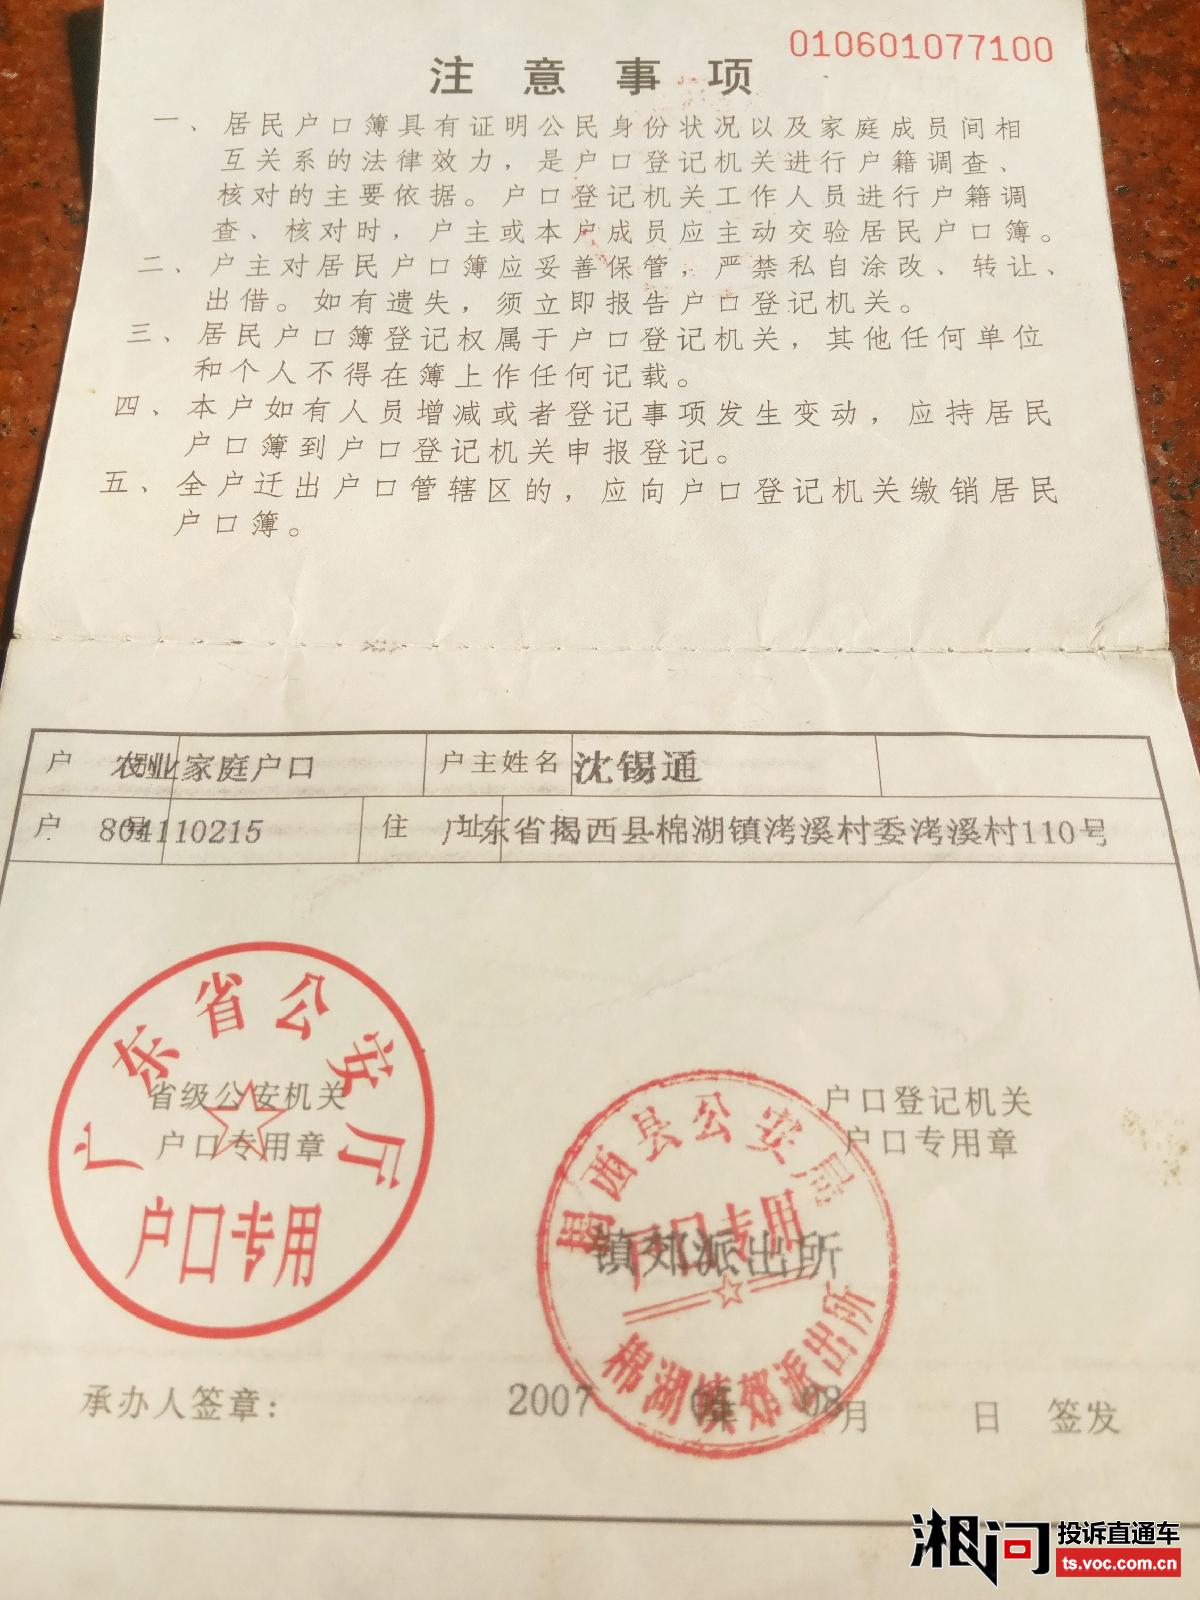 010601077100
注意事项
一、居民户口簿具有证明公民身份状况以及家庭成员间相
互关系的法律效力，是户口登记机关进行户籍调查、
核对的主要依据。户口登记机关工作人员进行户籍调
查、核对时，户主或本户成员应主动交验居民户口簿。
二、户主对居民户口簿应妥善保管，严禁私自涂改、转让、
出借。如有遗失，须立即报告户口登记机关。
三、居民户口簿登记权属于户口登记机关，其他任何单位
和个人不得在簿上作任何记载。
四、本户如有人员增减或者登记事项发生变动，应持居民
户口簿到户口登记机关申报登记。
五、全户迁出户口管辖区的，应向户口登记机关缴销居民
户口簿。
户别 农业家庭户口 户主姓名 沈锡通
户号 804110215 住址 广东省揭西县棉湖镇洘溪村委洘溪村110号
广东省公安厅
省级公安机关
户口专用章
户口专用
揭西县公安局
户口登记机关
户口专用章
户口专用
镇郊派出所
棉湖镇郊派出所
承办人签章： 2007 年 08 月 日 签发
湘问 投诉直通车
ts.voc.com.cn